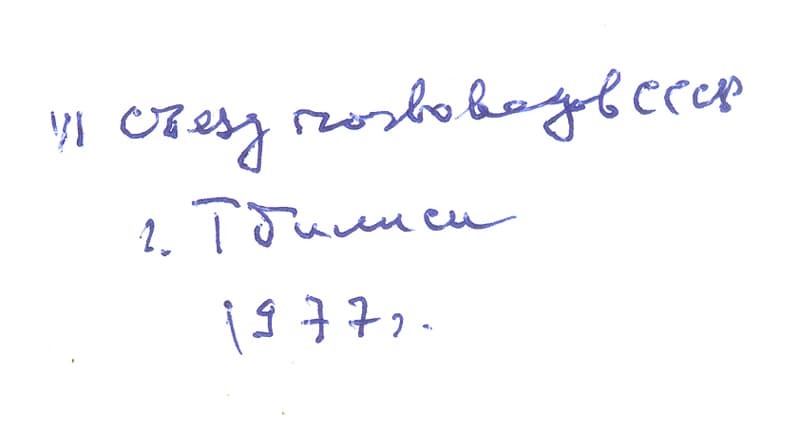 VI съезд почвоведов СССР
г. Тбилиси
1977 г.